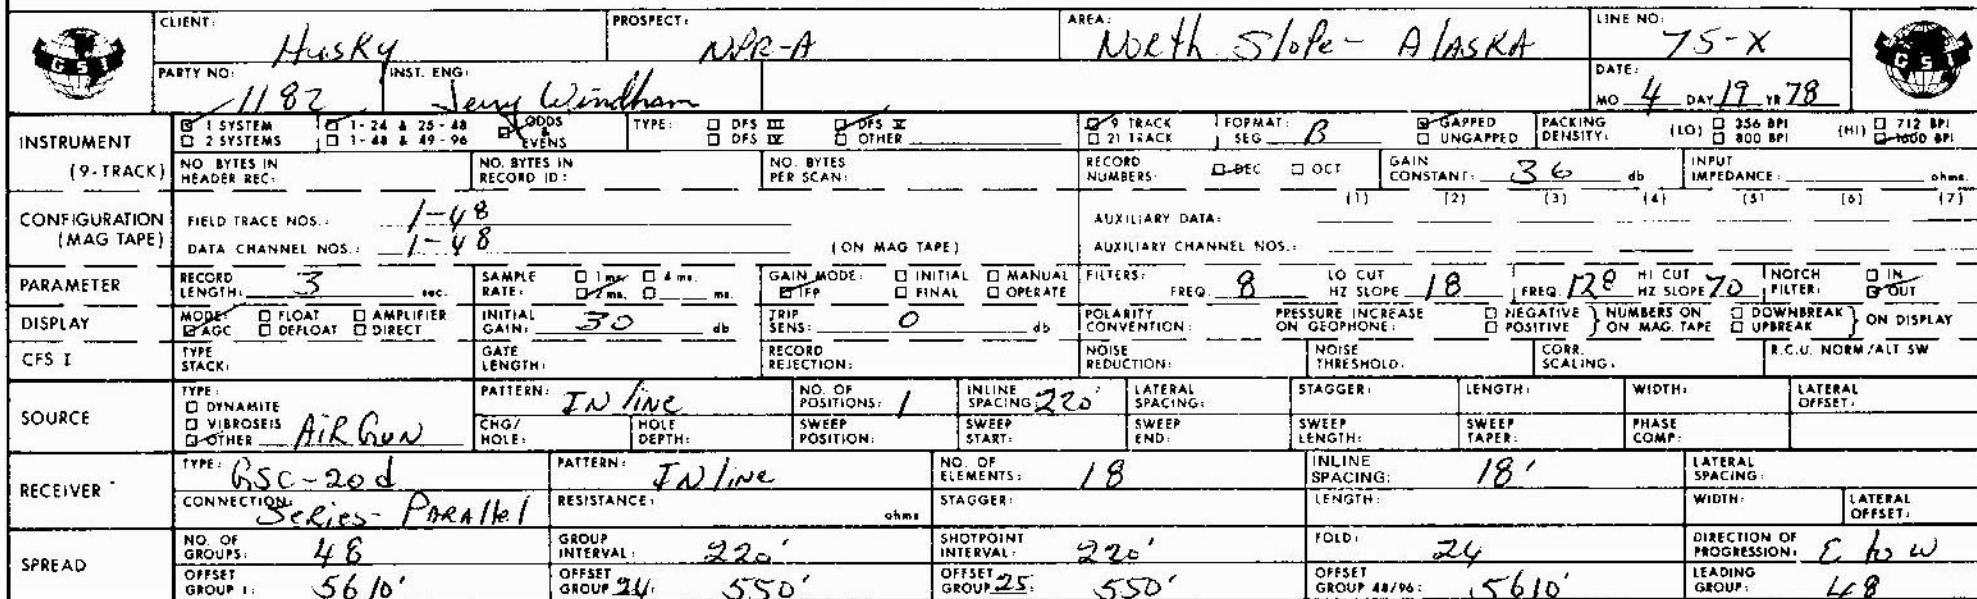 CLIENT: Husky PROSPECT: NPR-A AREA: North Slope - Alaska LINE NO: 75-X
GSI GSI
PARTY NO: 1182 INST. ENG: Jerry Windham DATE: MO 4 DAY 19 YR 78
INSTRUMENT (9-TRACK) 1 SYSTEM 1-24 & 25-48 ODDS & EVENS TYPE: DFS III DFS V 9 TRACK FORMAT: SEG B GAPPED PACKING DENSITY: (LO) 356 BPI (HI) 712 BPI
2 SYSTEMS 1-48 & 49-96 DFS IV OTHER 21 TRACK UNGAPPED 800 BPI 1600 BPI
NO. BYTES IN HEADER REC: NO. BYTES IN RECORD ID: NO. BYTES PER SCAN: RECORD NUMBERS: DEC OCT GAIN CONSTANT: 36 db INPUT IMPEDANCE: ohms.
CONFIGURATION (MAG TAPE) FIELD TRACE NOS.: 1-48 AUXILIARY DATA: (1) (2) (3) (4) (5) (6) (7)
DATA CHANNEL NOS.: 1-48 (ON MAG TAPE) AUXILIARY CHANNEL NOS.:
PARAMETER RECORD LENGTH: 3 sec. SAMPLE RATE: 1 ms. 4 ms. 2 ms. ms. GAIN MODE: INITIAL MANUAL IFP FINAL OPERATE FILTERS: FREQ. 8 LO CUT HZ SLOPE 18 FREQ. 128 HI CUT HZ SLOPE 70 NOTCH FILTER: IN OUT
DISPLAY MODE: FLOAT AMPLIFIER AGC DEFLOAT DIRECT INITIAL GAIN: 30 db TRIP SENS: 0 db POLARITY CONVENTION: PRESSURE INCREASE ON GEOPHONE: NEGATIVE POSITIVE NUMBERS ON ON MAG. TAPE DOWNBREAK UPBREAK ON DISPLAY
CFS I TYPE STACK: GATE LENGTH: RECORD REJECTION: NOISE REDUCTION: NOISE THRESHOLD: CORR. SCALING: R.C.U. NORM/ALT SW
SOURCE TYPE: DYNAMITE VIBROSEIS OTHER AIR GUN PATTERN: IN line NO. OF POSITIONS: 1 INLINE SPACING 220' LATERAL SPACING: STAGGER: LENGTH: WIDTH: LATERAL OFFSET:
CHG/HOLE: HOLE DEPTH: SWEEP POSITION: SWEEP START: SWEEP END: SWEEP LENGTH: SWEEP TAPER: PHASE COMP:
RECEIVER TYPE: GSC-20d PATTERN: IN line NO. OF ELEMENTS: 18 INLINE SPACING: 18' LATERAL SPACING:
CONNECTION: Series-Parallel RESISTANCE: ohms STAGGER: LENGTH: WIDTH: LATERAL OFFSET:
SPREAD NO. OF GROUPS: 48 GROUP INTERVAL: 220' SHOTPOINT INTERVAL: 220' FOLD: 24 DIRECTION OF PROGRESSION: E to W
OFFSET GROUP 1: 5610' OFFSET GROUP 24: 550' OFFSET GROUP 25: 550' OFFSET GROUP 48/96: 5610' LEADING GROUP: 48